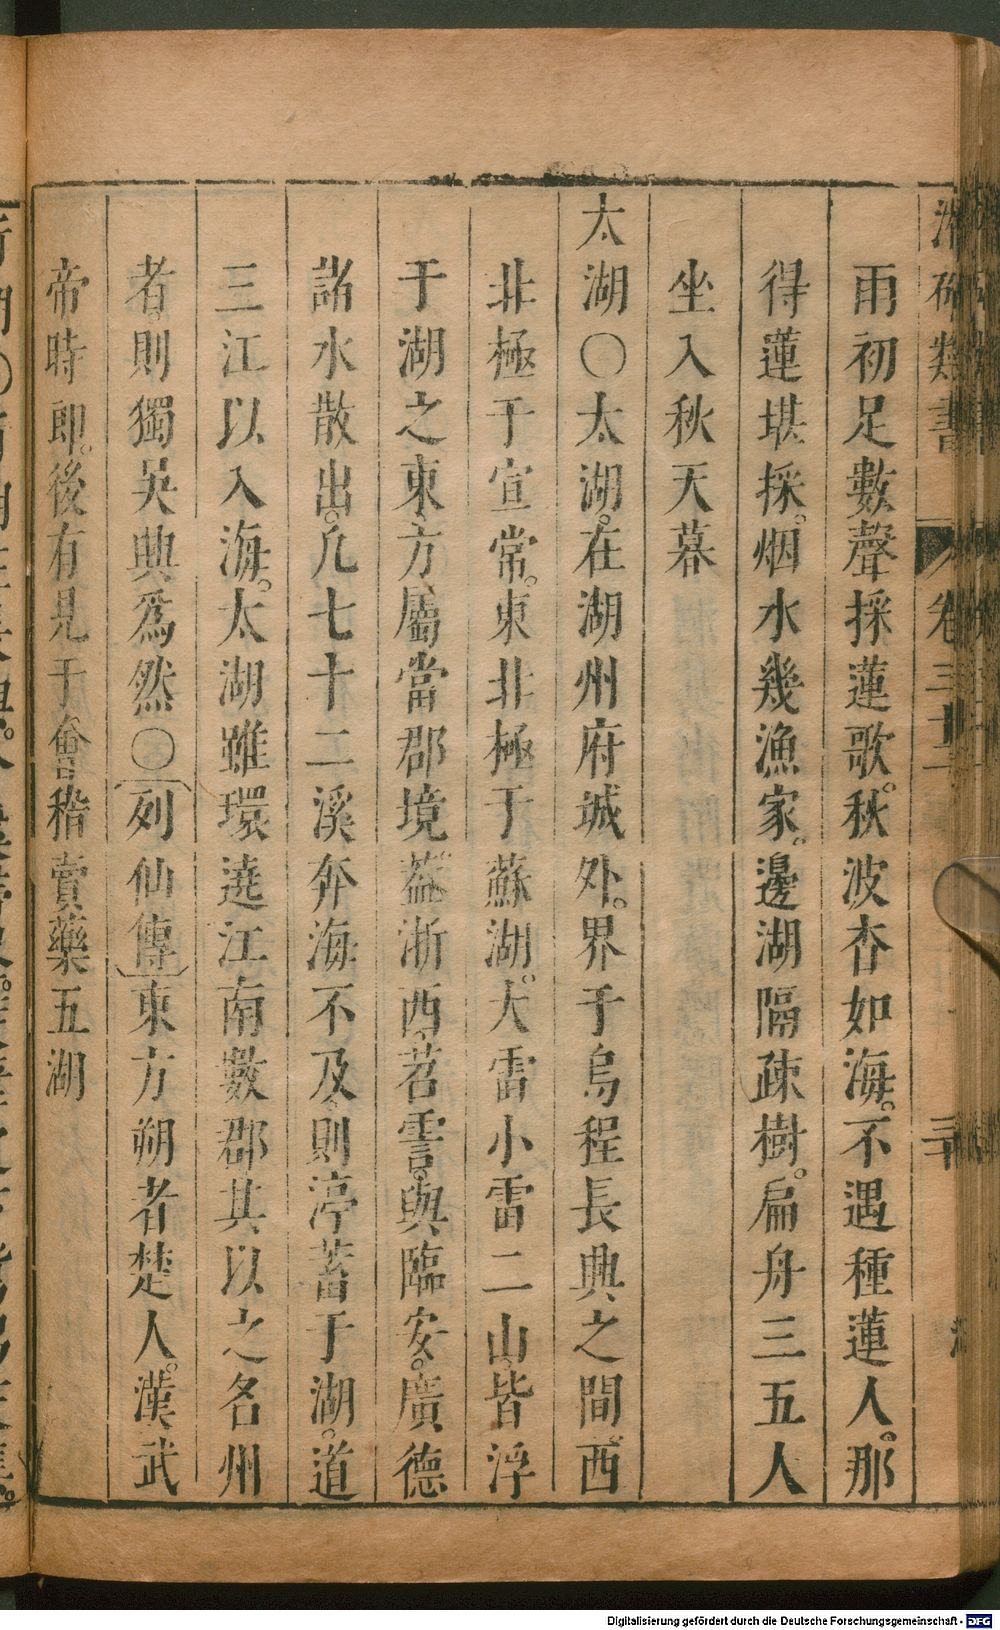 類書 卷三十二 三十
雨初足數聲採蓮歌。秋波杳如海。不遇種蓮人。那
得蓮堪採。烟水幾漁家。邊湖隔疎樹。扁舟三五人
坐入秋天暮
太湖〇太湖。在湖州府城外。界于烏程長興之間西
北極于宣常。東北極于蘇湖。大雷小雷二山。皆浮
于湖之東方屬當郡境葢浙西苕霅。與臨安。廣德
諸水散出。凡七十二溪奔海不及則渟蓄于湖。道
三江以入海。太湖雖環遶江南數郡其以之名州
者則獨吳興爲然〇列仙傳東方朔者楚人。漢武
帝時郎。後有見于會稽賣藥五湖
Digitalisierung gefördert durch die Deutsche Forschungsgemeinschaft - DFG